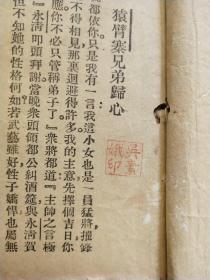 猿臂寨兄弟歸心
吳素
娥印
都依你只是我有一言我這小女也是一員猛將鋒
不得相見那裏迴避得許多我的主意先擇個吉日你
應你不必只管稱弟子了』衆將都道『主帥之言極
永清叩頭拜謝當晚衆頭領都公糾酒筵與永清賀
但不知她的性格何如若武藝雖好性子嬌悍也屬無